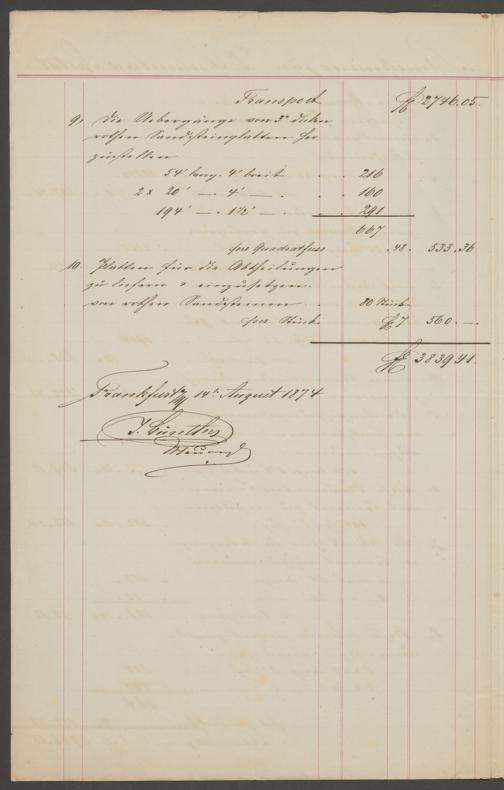 Transport fl 2746.05.
9, Die Uebergänge von 3" dicken
rothen Sandsteinplatten her
zustellen
54' lang. 4' breit . . 216
2 x 20' —. 4' —. . . 160
194' —. 1½' —. . . 291
667
per Quadratfuss . 48. 533.36
10. Platten für die Abtheilungen
zu liefern & einzusetzen.
von rothen Sandsteinen . 80 Stück
per Stück fl 7 560.—.
fl 3839.41
Frankfurt a/M 14t. August 1874
J. Günther